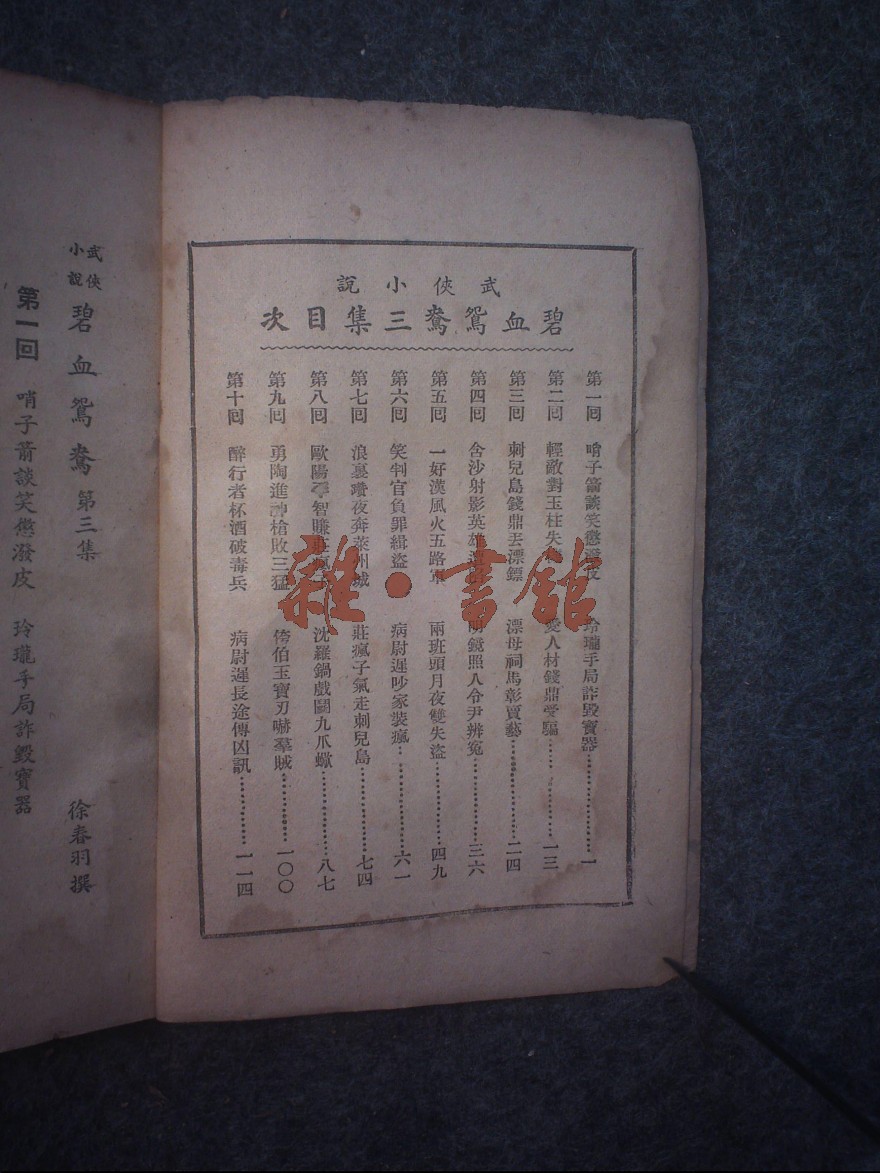 武俠小說
碧血鴛鴦三集目次
第一回 哨子箭談笑懲潑皮 玲瓏手局詐毀寶器…………一
第二回 輕敵對玉柱失 愛人材錢鼎受騙…………一三
第三回 刺兒島錢鼎丟漂鏢 漂母祠馬彰賣藝…………二四
第四回 含沙射影英雄 明鏡照人令尹辨冤…………三六
第五回 一好漢風火五路軍 兩班頭月夜雙失盜…………四九
第六回 笑判官負罪緝盜 病尉遲吵家裝瘋…………六一
第七回 浪裏鑽夜奔萊州城 莊瘋子氣走刺兒島…………七四
第八回 歐陽 智賺莊瘋 沈羅鍋戲鬪九爪蠍…………八七
第九回 勇陶進神槍敗三猛 侉伯玉寶刃嚇羣賊…………一〇〇
第十回 醉行者杯酒破毒兵 病尉遲長途傳凶訊…………一一四
武俠小說 碧血鴛鴦 第三集 徐春羽撰
第一回 哨子箭談笑懲潑皮 玲瓏手局詐毀寶器
雜·書館